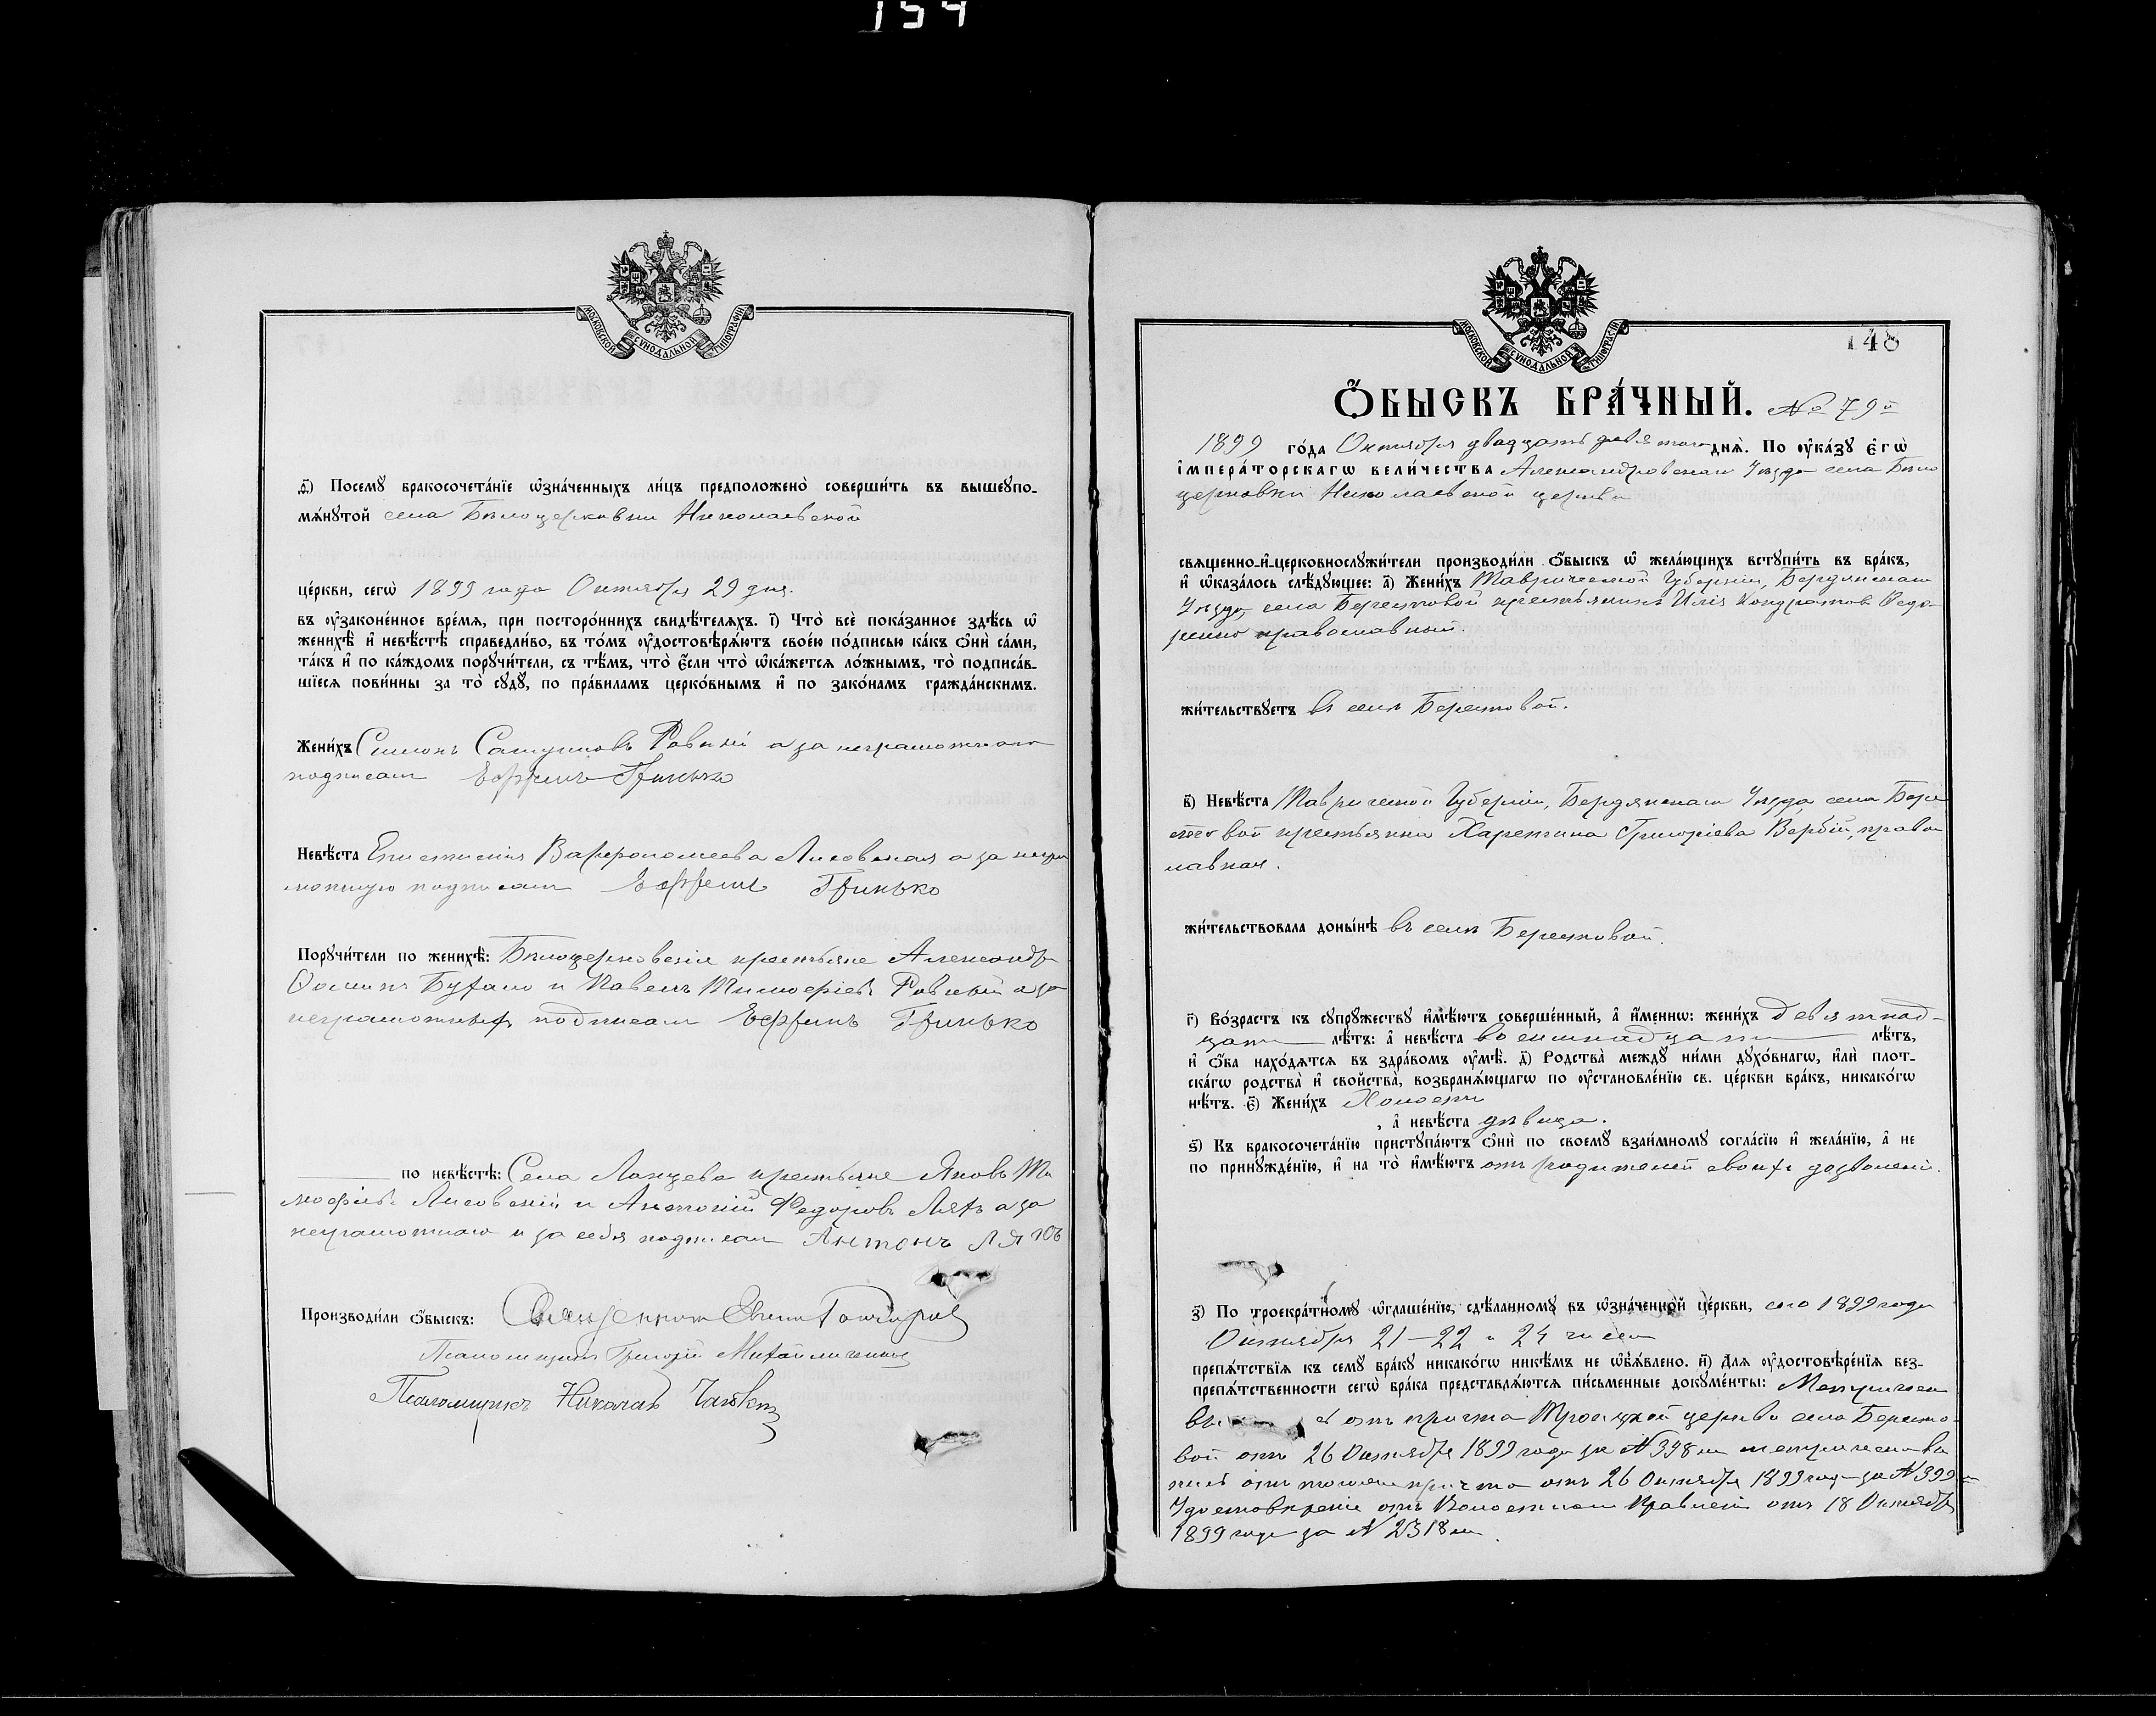 154
МОСКОВСКОЙ СѴНОДАЛЬНОЙ ТИПОГРАФІИ
ѳ҃) Посемꙋ бракосочета́нїе ѡ҆зна́ченныхъ ли́цъ предположено̀ соверши́ть въ вышеꙋпо-
мѧ́нꙋтой села Бѣлоцерковки Николаевской
це́ркви, сегѡ̀ 1899 года Октября 29 дня.
въ ᲂу҆зако́ненное вре́мѧ, при посторо́ннихъ свидѣ́телѧхъ. і҃) Что̀ всѐ пока́занное здѣ́сь ѡ҆
женихѣ̀ и҆ невѣ́стѣ справедли́во, въ то́мъ ᲂу҆достовѣрѧ́ютъ свое́ю по́дписью ка́къ ѻ҆нѝ са́ми,
та́къ и҆ по ка́ждомъ порꙋчи́тели, съ тѣ́мъ, что̀ є҆́сли что̀ ѡ҆ка́жетсѧ ло́жнымъ, то̀ подписа́в-
шїесѧ пови́нны за то̀ сꙋдꙋ̀, по пра́виламъ церко́внымъ и҆ по зако́намъ гражда́нскимъ.
Жени́хъ Симонъ Ровный а за неграмотнаго
подписал Ефремъ Гринько
Невѣ́ста Варфоломеева Лисовская а за негра
мотную подписал Ефремъ Гринько
Порꙋчи́тели по женихѣ̀: Бѣлоцерковскіе крестьяне Александръ
и Павелъ Тимофіевъ Ровный а за
неграмотныхъ подписал Ефремъ Гринько
по невѣ́стѣ: Села крестьяне Яковъ Ти
мофіевъ Лисовскій и Антоній Федоровъ Ляхъ а за
неграмотнаго и за себя подписал Антонъ Ляхъ
Производи́ли ѻ҆́быскъ: Священник
Псаломщикъ Григорій Михайличенко
Псаломщикъ Николай
МОСКОВСКОЙ СѴНОДАЛЬНОЙ ТИПОГРАФІИ
148
Ѻ҆́БЫСКЪ БРА́ЧНЫЙ. № 79й
1899 го́да Октября двадцать девятаго днѧ̀. По ᲂу҆ка́зꙋ є҆гѡ̀
і҆мпера́торскагѡ вели́чества Александровскаго Уѣзда села Бѣло
церковки Николаевской церкви
свѧще́нно-и҆-церковнослꙋжи́тели производи́ли ѻ҆́быскъ ѡ҆ жела́ющихъ встꙋпи́ть въ бра́къ,
и҆ ѡ҆каза́лось слѣ́дꙋющее: а҃) Жени́хъ Таврической Губерніи, Бердянскаго
Уѣзда, села Берестовой крестьянинъ Илія Кондратов Ѳедо
ренко православный.
жи́тельствꙋетъ въ селѣ Берестовой.
в҃) Невѣ́ста Таврической Губерніи, Бердянскаго Уѣзда, села Бере
стовой крестьянка Харитина Григоріева Вербій, право
славная.
жи́тельствовала доны́нѣ въ селѣ Берестовой.
г҃) Во́зрастъ къ сꙋпрꙋ́жествꙋ и҆мѣ́ютъ соверше́нный, а҆ и҆́меннѡ: жени́хъ девятнад-
цати лѣ́тъ: а҆ невѣ́ста восемнадцати лѣ́тъ,
и҆ ѻ҆́ба нахо́дѧтсѧ въ здра́вомъ ᲂу҆мѣ̀. д҃) Родства̀ междꙋ̀ ни́ми дꙋхо́внагѡ, и҆лѝ пло́т-
скагѡ родства̀ и҆ сво́йства̀, возбранѧ́ющагѡ по ᲂу҆становле́нїю св. це́ркви бра́къ, никако́гѡ
нѣ́тъ. є҃) Жени́хъ Холостъ
, а҆ невѣ́ста дѣвица.
ѕ҃) Къ бракосочета́нїю пристꙋпа́ютъ ѻ҆нѝ по своемꙋ̀ взаи́мномꙋ согла́сїю и҆ жела́нїю, а҆ не
по принꙋжде́нїю, и҆ на то̀ и҆мѣ́ютъ отъ родителей своихъ дозволеніе.
з҃) По троекра́тномꙋ ѡ҆глаше́нїю, сдѣ́ланномꙋ въ ѡ҆зна́ченной це́ркви, сего 1899 года
Октября 21–22 и 24 числа
препѧ́тствїѧ къ семꙋ̀ бра́кꙋ никако́гѡ никѣ́мъ не ѡ҆б̾ѧ́влено. и҃) Длѧ ᲂу҆достовѣре́нїѧ без-
препѧ́тственности сегѡ̀ бра́ка представлѧ́ютсѧ пи́сьменные докꙋме́нты: Метрическ
вы отъ причта Троицкой церкви села Бересто-
вой отъ 26 Октября 1899 года за № 398м метрическая вы
пись отъ того же причта отъ 26 Октября 1899 года за № 399м
Удостовѣреніе отъ Волостнаго Правленія отъ 18 Октября
1899 года за № 2318м.